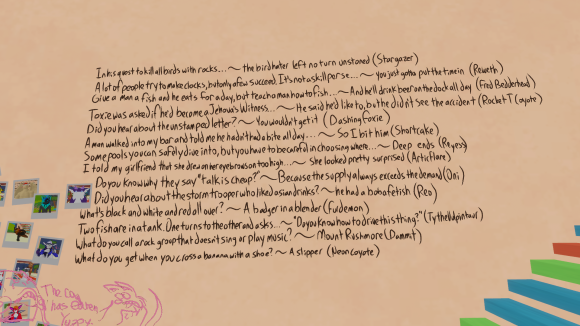 In his quest to kill all birds with rocks...~ the bird hater left no turn unstoned (Stargazer)
A lot of people try to make clocks, but only a few succeed. It's not a skill per se...~ you just gotta put the time in (Reweth)
Give a man a fish and he eats for a day, but teach a man how to fish...~ And he'll drink beer on the dock all day (Fred Bedderhead)
Toxie was asked if he'd become a Jehova's Witness...~ He said he'd like to, but he didn't see the accident (Rocket T Coyote)
Did you hear about the unstamped letter?~ You wouldn't get it (Dashing Foxie)
A man walked into my bar and told me he hadn't had a bite all day....~ So I bit him (Shortcake)
Some pools you can safely dive into, but you have to be careful in choosing where...~ Deep ends (Reyess)
I told my girlfriend that she drew on her eyebrows on too high...~ She looked pretty surprised (Articflare)
Do you know why they say "talk is cheap?"~ Because the supply always exceeds the demand (Oni)
Did you hear about the storm trooper who liked asian drinks?~ he had a boba fetish (Reo)
What's black and white and red all over?~ A badger in a blender (Furdemon)
Two fish are in a tank. One turns to the other and asks...~ "Do you know how to drive this thing?" (Ty the
What do you call a rock group that doesn't sing or play music?~ Mount Rushmore (Dammit)
What do you get when you cross a banana with a shoe?~ A slipper (Neoncoyote)
The Cow
has Eaten
Yuzpy